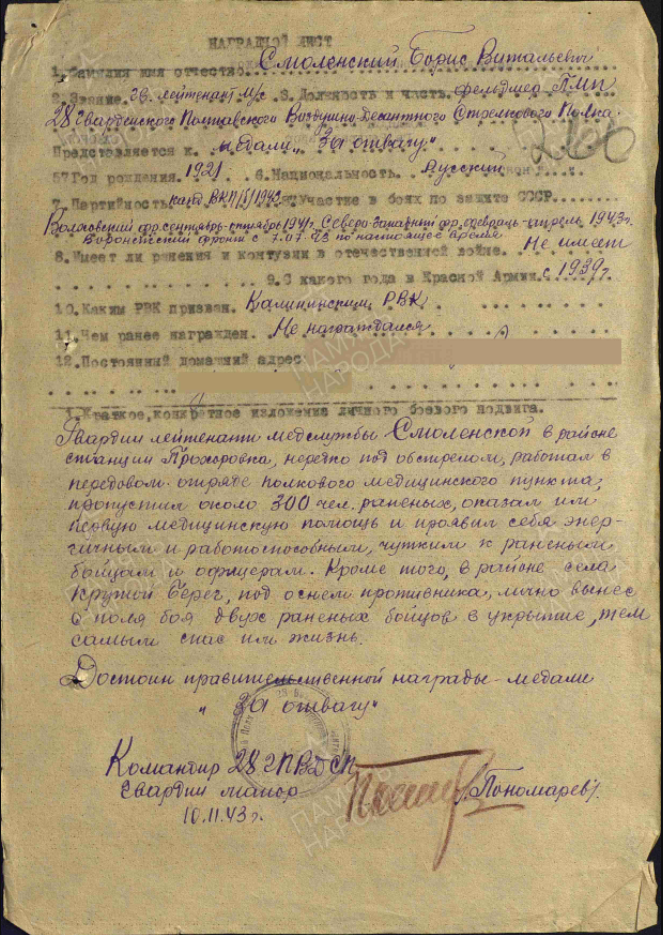 НАГРАДНОЙ ЛИСТ
1. Фамилия имя отчество Смоленский Борис Витальевич
2. Звание. гв. лейтенант м/с 3. Должность и часть фельдшер ПМП
28 Гвардейского Полтавского Воздушно-Десантного Стрелкового Полка
Представляется к медали „За отвагу"
5. Год рождения 1921 6. Национальность Русский
7. Партийность канд ВКП/б/ 1942 Участие в боях по защите СССР.
фр. сентябрь-октябрь 1941г. Северо-Западный фр. февраль-апрель 1943г.
Воронежский фронт с 7.07.43 по настоящее время
8. Имеет ли ранения и контузии в отечественной войне. Не имеет
9. С какого года в Красной Армии. с 1939г
10. Каким РВК призван. Калининским РВК
11. Чем ранее награжден. Не награждался
12. Постоянный домашний адрес:
1. Краткое, конкретное изложение личного боевого подвига.
Гвардии лейтенант медслужбы Смоленской в районе
станции Прохоровка, нередко под обстрелом, работал в
передовом отряде полкового медицинского пункта;
пропустил около 300 чел. раненых, оказал им
первую медицинскую помощь и проявил себя энер-
гичным и работоспособным, чутким к раненым
бойцам и офицерам. Кроме того, в районе села
Крутой Берег, под огнем противника, лично вынес
с поля боя двух раненых бойцов в укрытие, тем
самым спас им жизнь.
Достоин правительственной награды - медали
„За отвагу"
Командир 28 ГПВДСП
Гвардии майор /Пономарев/.
10.11.43г.
ПАМЯТЬ
НАРОДА